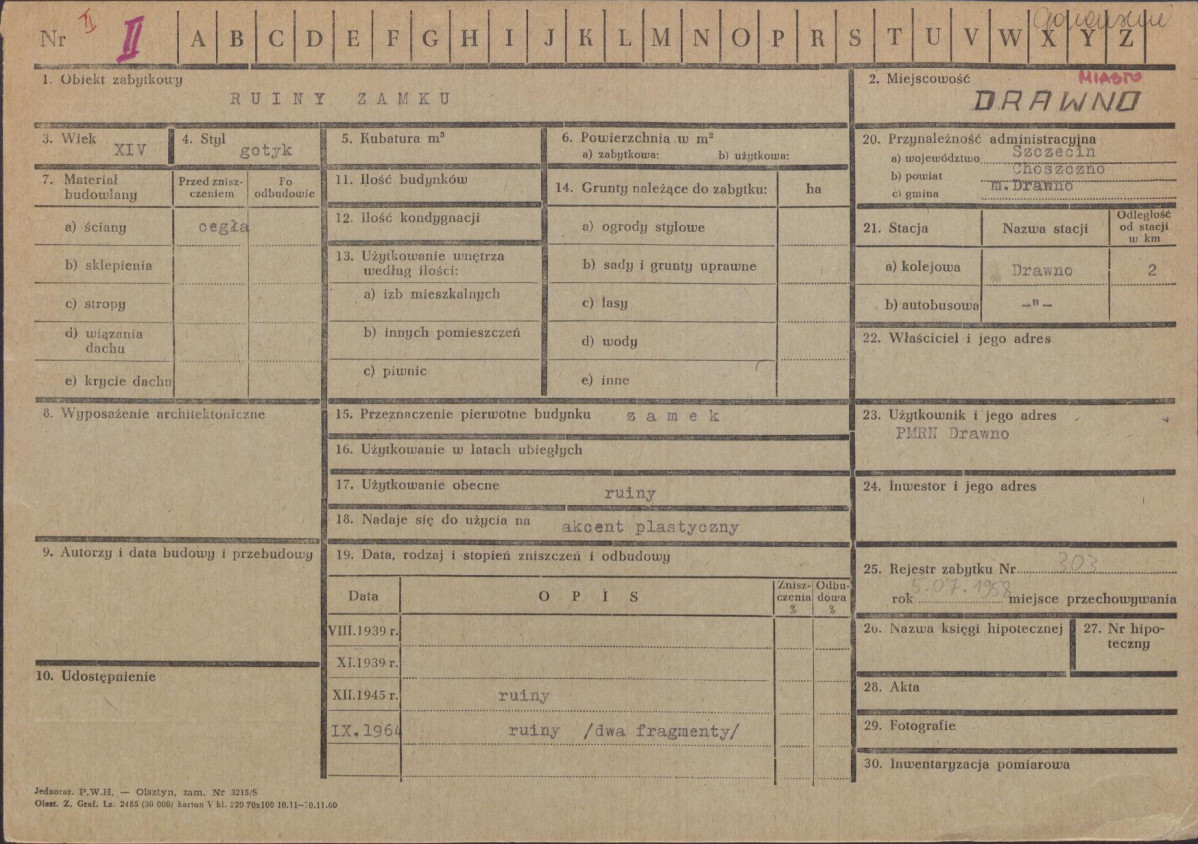 Nr II II A B C D E F G H I J K L M N O P R S T U V W X Y Z
1. Obiekt zabytkowy
RUINY ZAMKU
2. Miejscowość
MIASTO
DRAWNO
3. Wiek
XIV
4. Styl
gotyk
5. Kubatura m³
6. Powierzchnia w m²
a) zabytkowa: b) użytkowa:
7. Materiał budowlany
Przed znisz-
czeniem
Po
odbudowie
a) ściany cegła
b) sklepienia
c) stropy
d) wiązania
dachu
e) krycie dachu
8. Wyposażenie architektoniczne
9. Autorzy i data budowy i przebudowy
10. Udostępnienie
11. Ilość budynków
12. Ilość kondygnacji
13. Użytkowanie wnętrza
według ilości:
a) izb mieszkalnych
b) innych pomieszczeń
c) piwnic
14. Grunty należące do zabytku: ha
a) ogrody stylowe
b) sady i grunty uprawne
c) lasy
d) wody
e) inne
15. Przeznaczenie pierwotne budynku zamek
16. Użytkowanie w latach ubiegłych
17. Użytkowanie obecne ruiny
18. Nadaje się do użycia na akcent plastyczny
19. Data, rodzaj i stopień zniszczeń i odbudowy
Data OPIS
Znisz-
czenia
%
Odbu-
dowa
%
VIII.1939 r.
XI.1939 r.
XII.1945 r. ruiny
IX.1964 ruiny /dwa fragmenty/
20. Przynależność administracyjna
a) województwo Szczecin
b) powiat Choszczno
c) gmina m.Drawno
21. Stacja Nazwa stacji
Odległość
od stacji
w km
a) kolejowa Drawno 2
b) autobusowa -"-
22. Właściciel i jego adres
23. Użytkownik i jego adres
PMRN Drawno
24. Inwestor i jego adres
25. Rejestr zabytku Nr 303
rok 5.07.1958 miejsce przechowywania
26. Nazwa księgi hipotecznej
27. Nr hipo-
teczny
28. Akta
29. Fotografie
30. Inwentaryzacja pomiarowa
Jednoraz. P.W.H. — Olsztyn, zam. Nr 3215/S
Olszt. Z. Graf. Lz. 2485 (30 000) karton V kl. 220 70x100 10.11—10.11.60